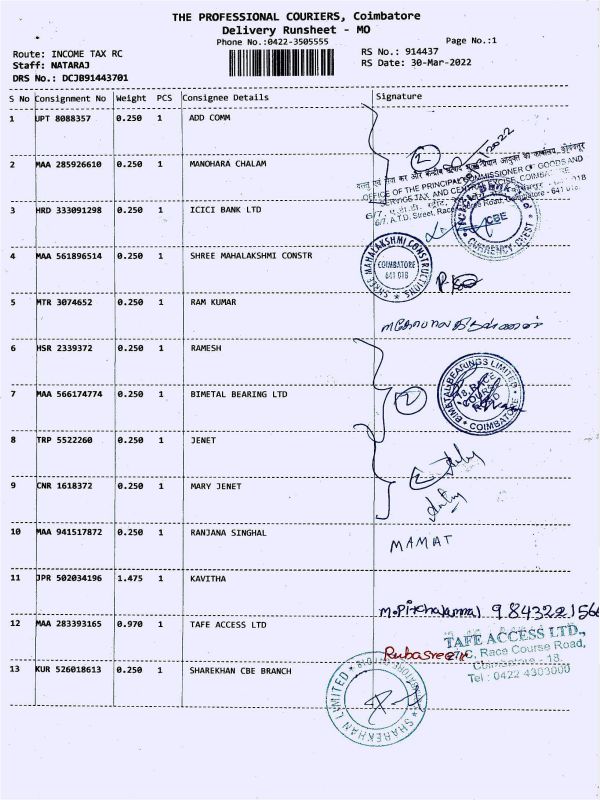 THE PROFESSIONAL COURIERS, Coimbatore
Delivery Runsheet - MO
Phone No.:0422-3505555
Page No.:1
Route: INCOME TAX RC
RS No.: 914437
Staff: NATARAJ
RS Date: 30-Mar-2022
DRS No.: DCJB91443701
S No Consignment No Weight PCS Consignee Details Signature
1 UPT 8088357 0.250 1 ADD COMM
2 MAA 285926610 0.250 1 MANOHARA CHALAM
2
OFFICE OF THE PRINCIPAL COMMISSIONER OF GOODS AND
SERVICE TAX AND CENTRAL EXCISE,
6/7, A.T.D. Street, Race Course Road, Coimbatore - 641 018.
3 HRD 333091298 0.250 1 ICICI BANK LTD
CBE
CURRENCY CHEST
4 MAA 561896514 0.250 1 SHREE MAHALAKSHMI CONSTR
SHREE MAHALAKSHMI CONSTRUCTIONS
COIMBATORE
641 018
5 MTR 3074652 0.250 1 RAM KUMAR
6 HSR 2339372 0.250 1 RAMESH
7 MAA 566174774 0.250 1 BIMETAL BEARING LTD
2
BIMETAL BEARINGS LIMITED
18, RACE
COURSE
ROAD
COIMBATORE
8 TRP 5522260 0.250 1 JENET
2
9 CNR 1618372 0.250 1 MARY JENET
10 MAA 941517872 0.250 1 RANJANA SINGHAL
MAMAT
11 JPR 502034196 1.475 1 KAVITHA
M.Pitchaiammal 9843221566
12 MAA 283393165 0.970 1 TAFE ACCESS LTD
TAFE ACCESS LTD.,
Rubasree
Race Course Road,
Coimbatore - 18.
Tel : 0422 4303000
13 KUR 526018613 0.250 1 SHAREKHAN CBE BRANCH
SHAREKHAN LIMITED